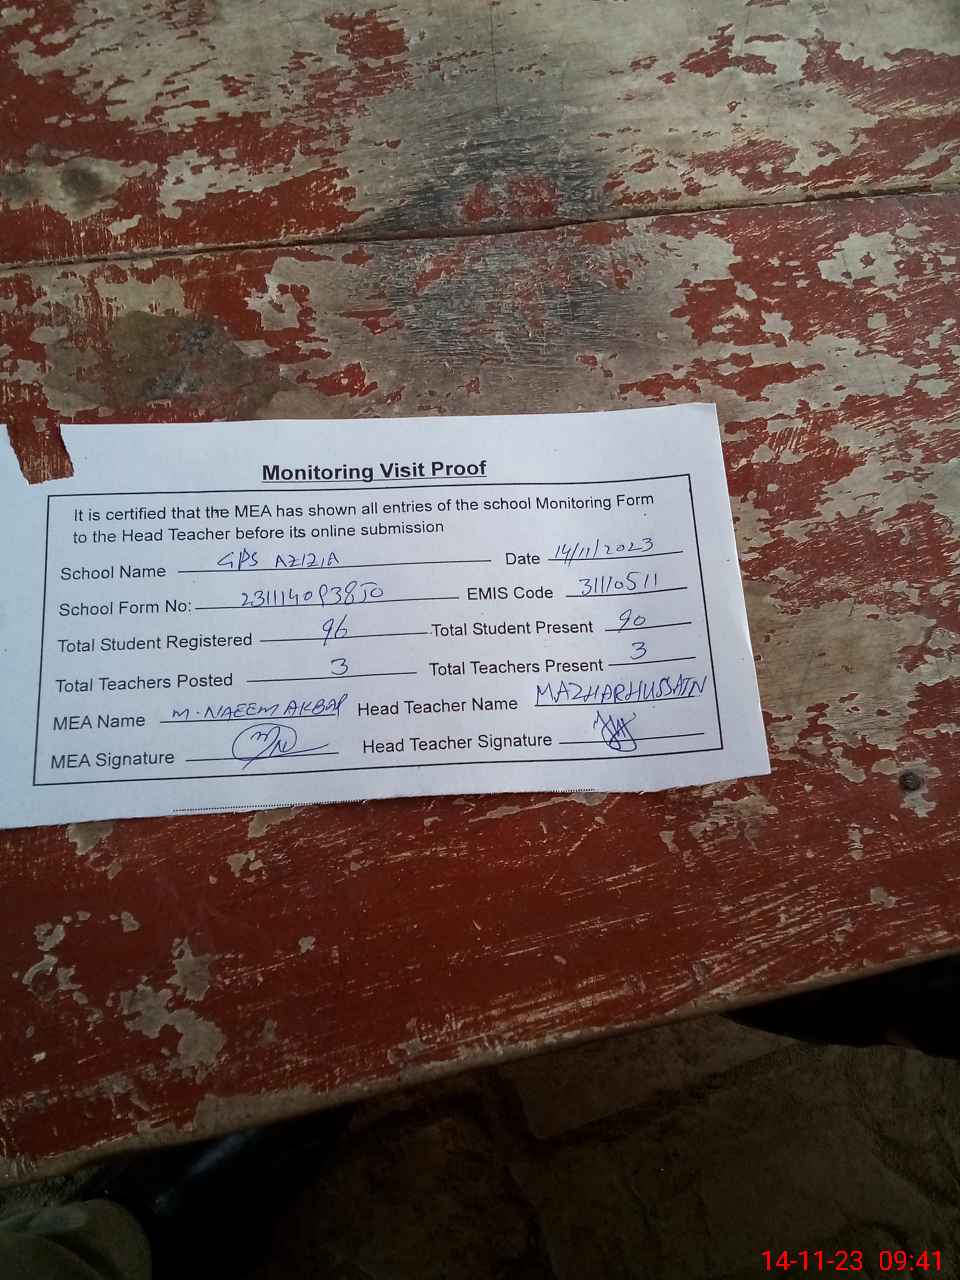 Monitoring Visit Proof
It is certified that the MEA has shown all entries of the school Monitoring Form
to the Head Teacher before its online submission
School Name GPS AZIZIA Date 14/11/2023
School Form No: EMIS Code 31110511
Total Student Registered 96 Total Student Present 90
Total Teachers Posted 3 Total Teachers Present 3
MEA Name M. NAEEM AKBAR Head Teacher Name MAZHAR HUSSAIN
MEA Signature Head Teacher Signature
14-11-23 09:41